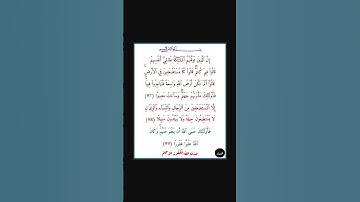 إن الذين توفهم الملئكة ظالمي أنفسهم
قالوا فيم كنتم قالوا كنا مستضعفين في الأرض
قالوا ألم تكن أرض الله وسعة فتهاجروا فيها
فأولئك مأوهم جهنم وساءت مصيرا (97)
إلا المستضعفين من الرجال والنساء والولدن
لا يستطيعون حيلة ولا يهتدون سبيلا (98)
فأولئك عسى الله أن يعفو عنهم وكان
الله عفوا غفورا (99)